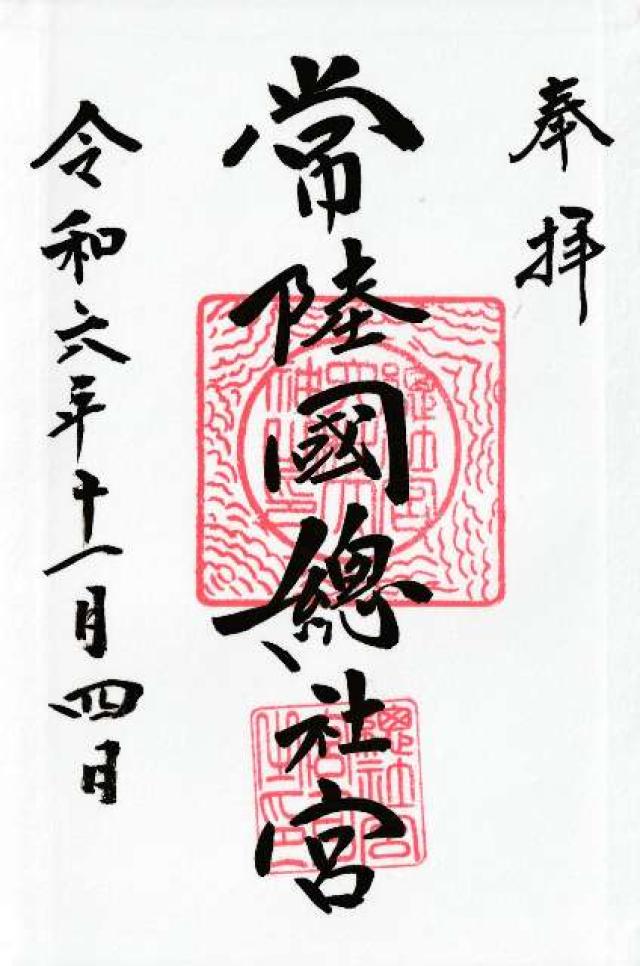 奉拝
常陸國總社宮
令和六年十一月四日